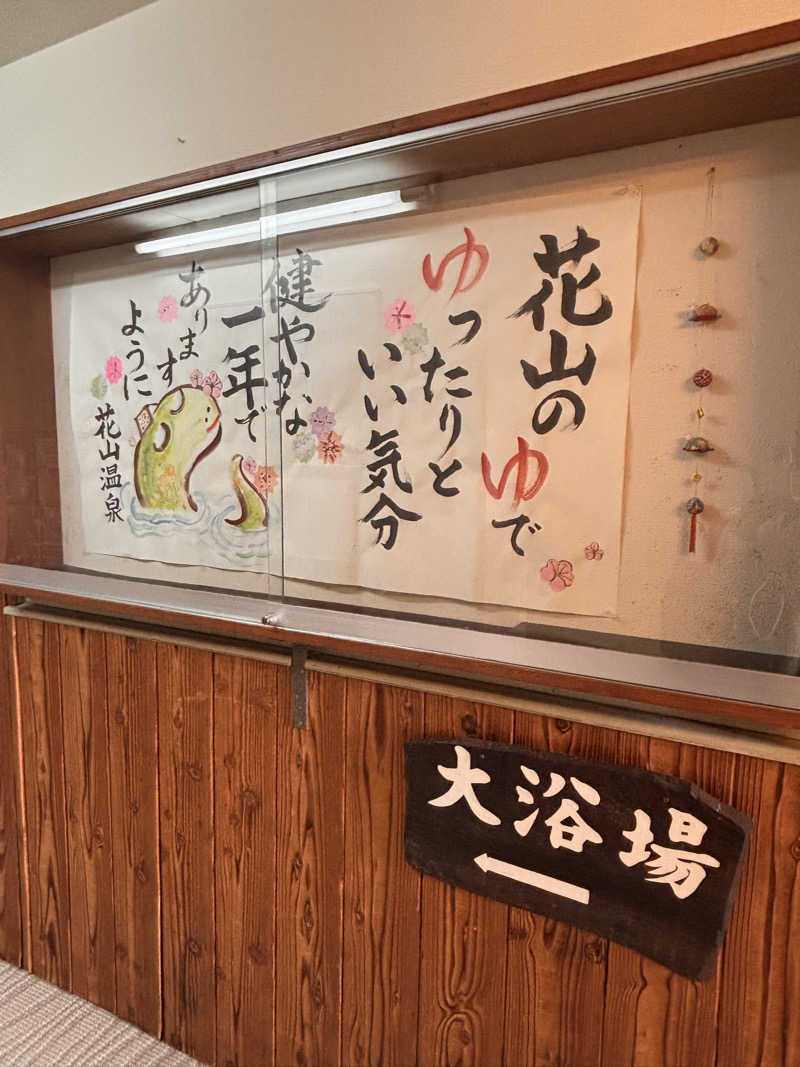 花山の
ゆで
ゆったりと
いい気分
健やかな
一年で
あります
ように
花山温泉
大浴場